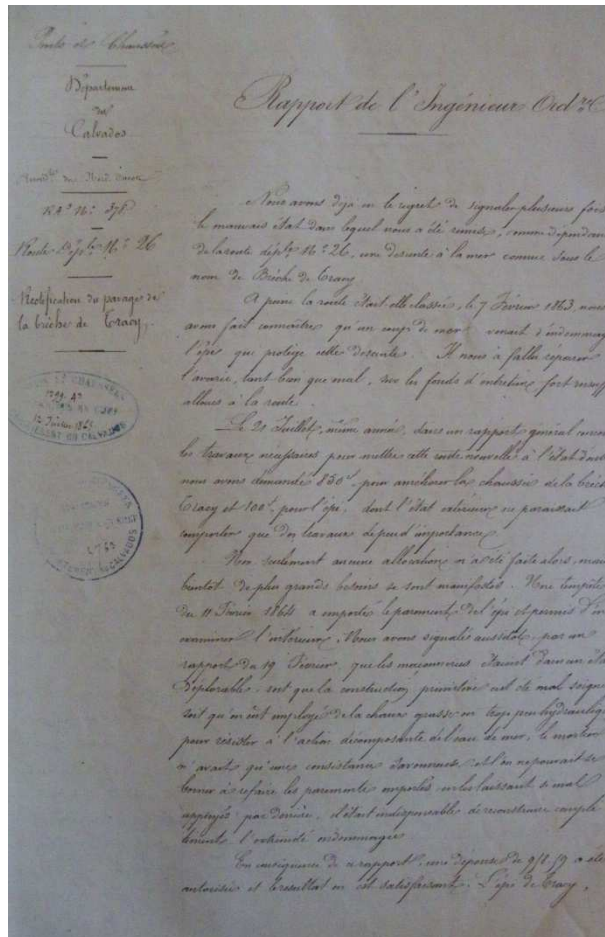 Ponts et Chaussées
Département
du
Calvados
Route Dép.le N.o 26
Rectification du pavage de
la brèche de Tracy.
Rapport de l'Ingénieur Ord.re
Nous avons déjà eu le regret de signaler plusieurs fois
le mauvais état dans lequel nous a été remise, comme dépendan
de la route dép.le N.o 26, une descente à la mer connue sous le
nom de Brèche de Tracy.
A peine la route était-elle classée, le 7 Février 1863, nous
avons fait connaître qu'un coup de mer venait d'endommag
l'épi qui protège cette descente. Il nous a fallu réparer
l'avarie, tant bien que mal, sur les fonds d'entretien fort insuff
alloués à la route.
Le 20 Juillet, même année, dans un rapport général
les travaux nécessaires pour mettre cette route nouvelle à l'état dans
nous avons demandé 850f pour améliorer la chaussée de la brèch
Tracy et 100f pour l'épi, dont l'état extérieur ne paraissait
comporter que des travaux de peu d'importance.
Non seulement aucune allocation n'a été faite alors, mais
bientôt de plus grands besoins se sont manifestés. Une tempête
du 11 Février 1864 a emporté le parement de l'épi et permis d'en
examiner l'intérieur. Nous avons signalé aussitôt, par un
rapport du 19 Février, que les maçonneries étaient dans un éta
déplorable, soit que la construction primitive eut été mal soigné
soit qu'on eut employé de la chaux grasse ou trop peu hydrauliq
pour résister à l'action décomposante de l'eau de mer, le mortier
n'avait qu'une consistance savonneuse et l'on ne pouvait se
borner à refaire les parements emportés en les laissant si mal
appuyés par derrière, il était indispensable de reconstruire complè
tement l'extrémité endommagée.
En conséquence de ce rapport, une dépense de a été
autorisée et le résultat en est satisfaisant. L'épi de Tracy,